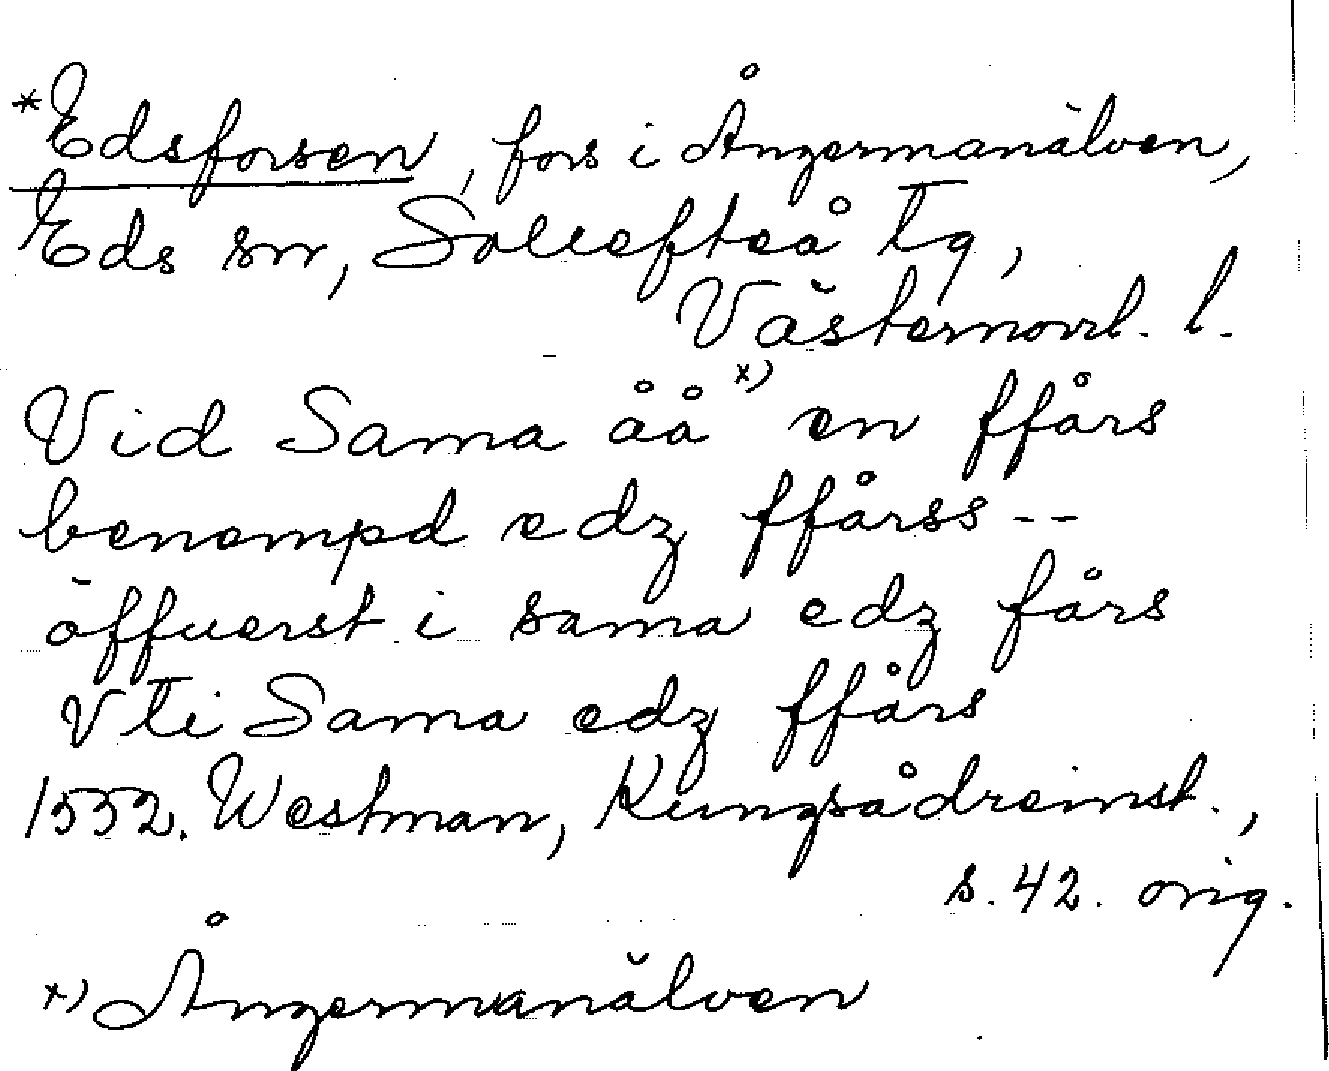 *Edsforsen, fors i Ångermanälven,
Eds sn, Sollefteå tg,
Västernorrl. l.
Vid Sama åå x) en ffårs
benempd edz ffårss --
öffuerst i sama edz fårs
Vti Sama edz ffårs
1552. Westman, Kungsådreinst.,
s. 42. orig.
x) Ångermanälven